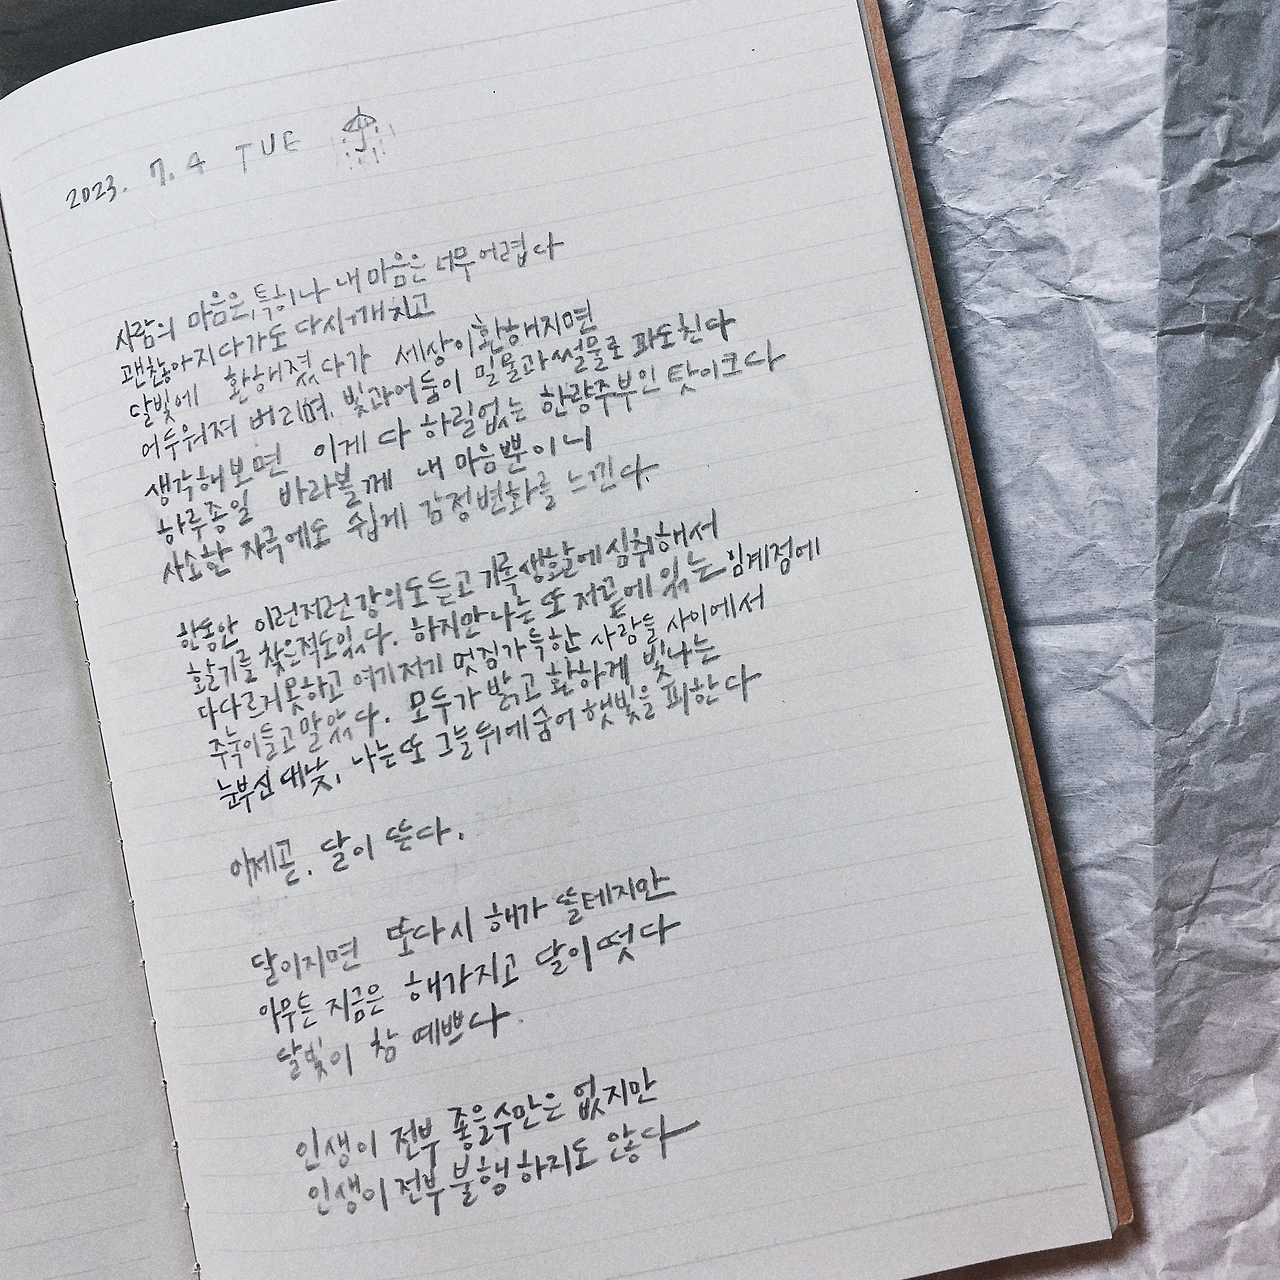 2023. 7. 4 TUE
사람의 마음은, 특히나 내 마음은 너무 어렵다
괜찮아지다가도 다시 깨치고
달빛에 환해졌다가 세상이 환해지면
어두워져 버리며, 빛과 어둠이 밀물과 썰물로 파도친다
생각해보면 이게 다 하릴없는 한량주부인 탓이 크다
하루종일 바라볼께 내 마음뿐이니
사소한 자극에도 쉽게 감정변화를 느낀다.
한동안 이런저런 강의도 듣고 기록생활에 심취해서
활기를 찾은적도 있다. 하지만 나는 또 저 끝에 있는 임계점에
다다르지 못하고 여기저기 멋짐 가득한 사람들 사이에서
주눅이 들고 말았다. 모두가 밝고 환하게 빛나는
눈부신 대낮, 나는 또 그늘 뒤에 숨어 햇빛을 피한다
이제 곧, 달이 뜬다.
달이 지면 또다시 해가 뜰테지만
아무튼 지금은 해가 지고 달이 떳다
달빛이 참 예쁘다.
인생이 전부 좋을수만은 없지만
인생이 전부 불행하지도 않다